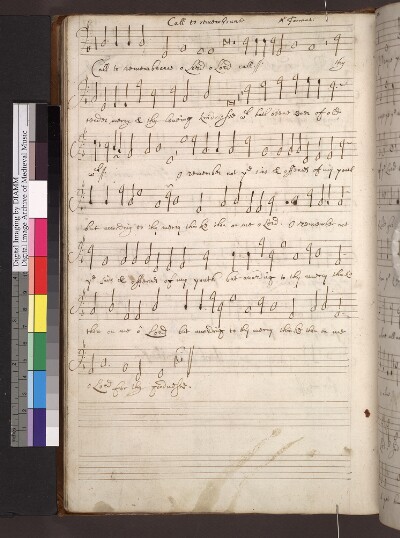 Call to remembrance
Call to remembrance o Lord o Lord call thy
tender mercy & thy loving been ever of old
O remember not ye sins & offences of my youth
but according to thy mercy thinke thou on me o Lord O remember not
ye sins & offences of my youth but according to thy mercy thinke
thou on me o Lord but according to thy mercy thinke thou on me
o Lord for thy goodness.
Digital Imaging by DIAMM
Digital Image Archive of Medieval Music